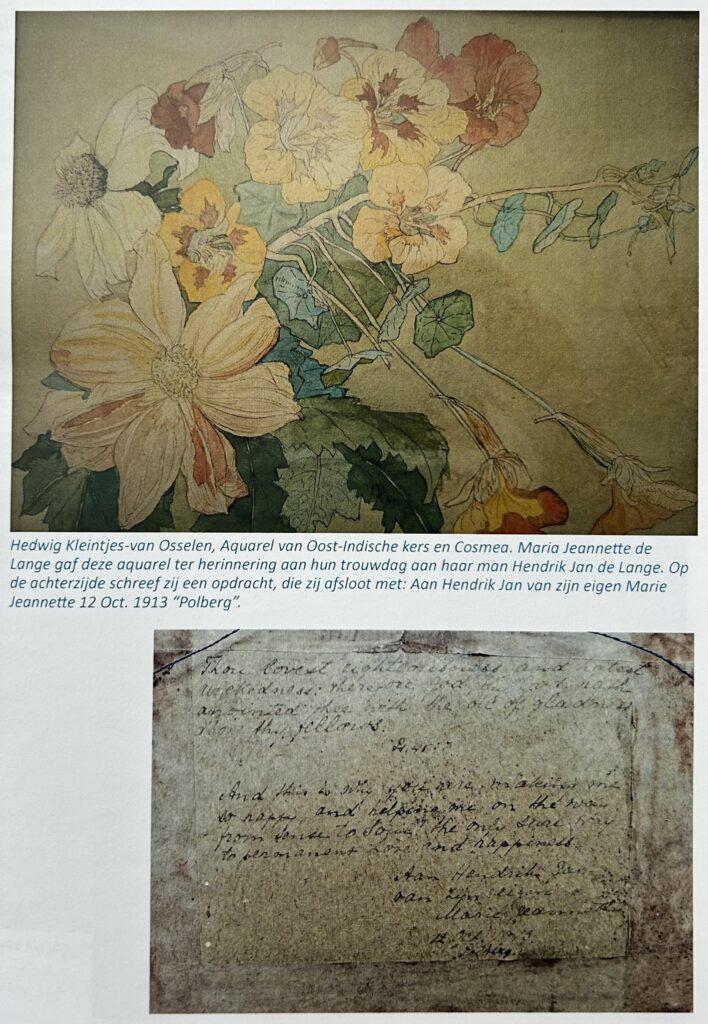 Hedwig Kleintjes-van Osselen, Aquarel van Oost-Indische kers en Cosmea. Maria Jeannette de
Lange gaf deze aquarel ter herinnering aan hun trouwdag aan haar man Hendrik Jan de Lange. Op
de achterzijde schreef zij een opdracht, die zij afsloot met: Aan Hendrik Jan van zijn eigen Marie
Jeannette 12 Oct. 1913 “Polberg”.
Thou lovest righteousness and hatest
wickedness: therefore God thy God hath
anointed thee with the oil of gladness
thy fellows.
And this is why you are making me
so happy and helping me on the way
from sense to Soul, the only sure way
to permanent Love and happiness.
Aan Hendrik Jan
van zijn eigen
Marie Jeannette
12 Oct. 1913
Polberg